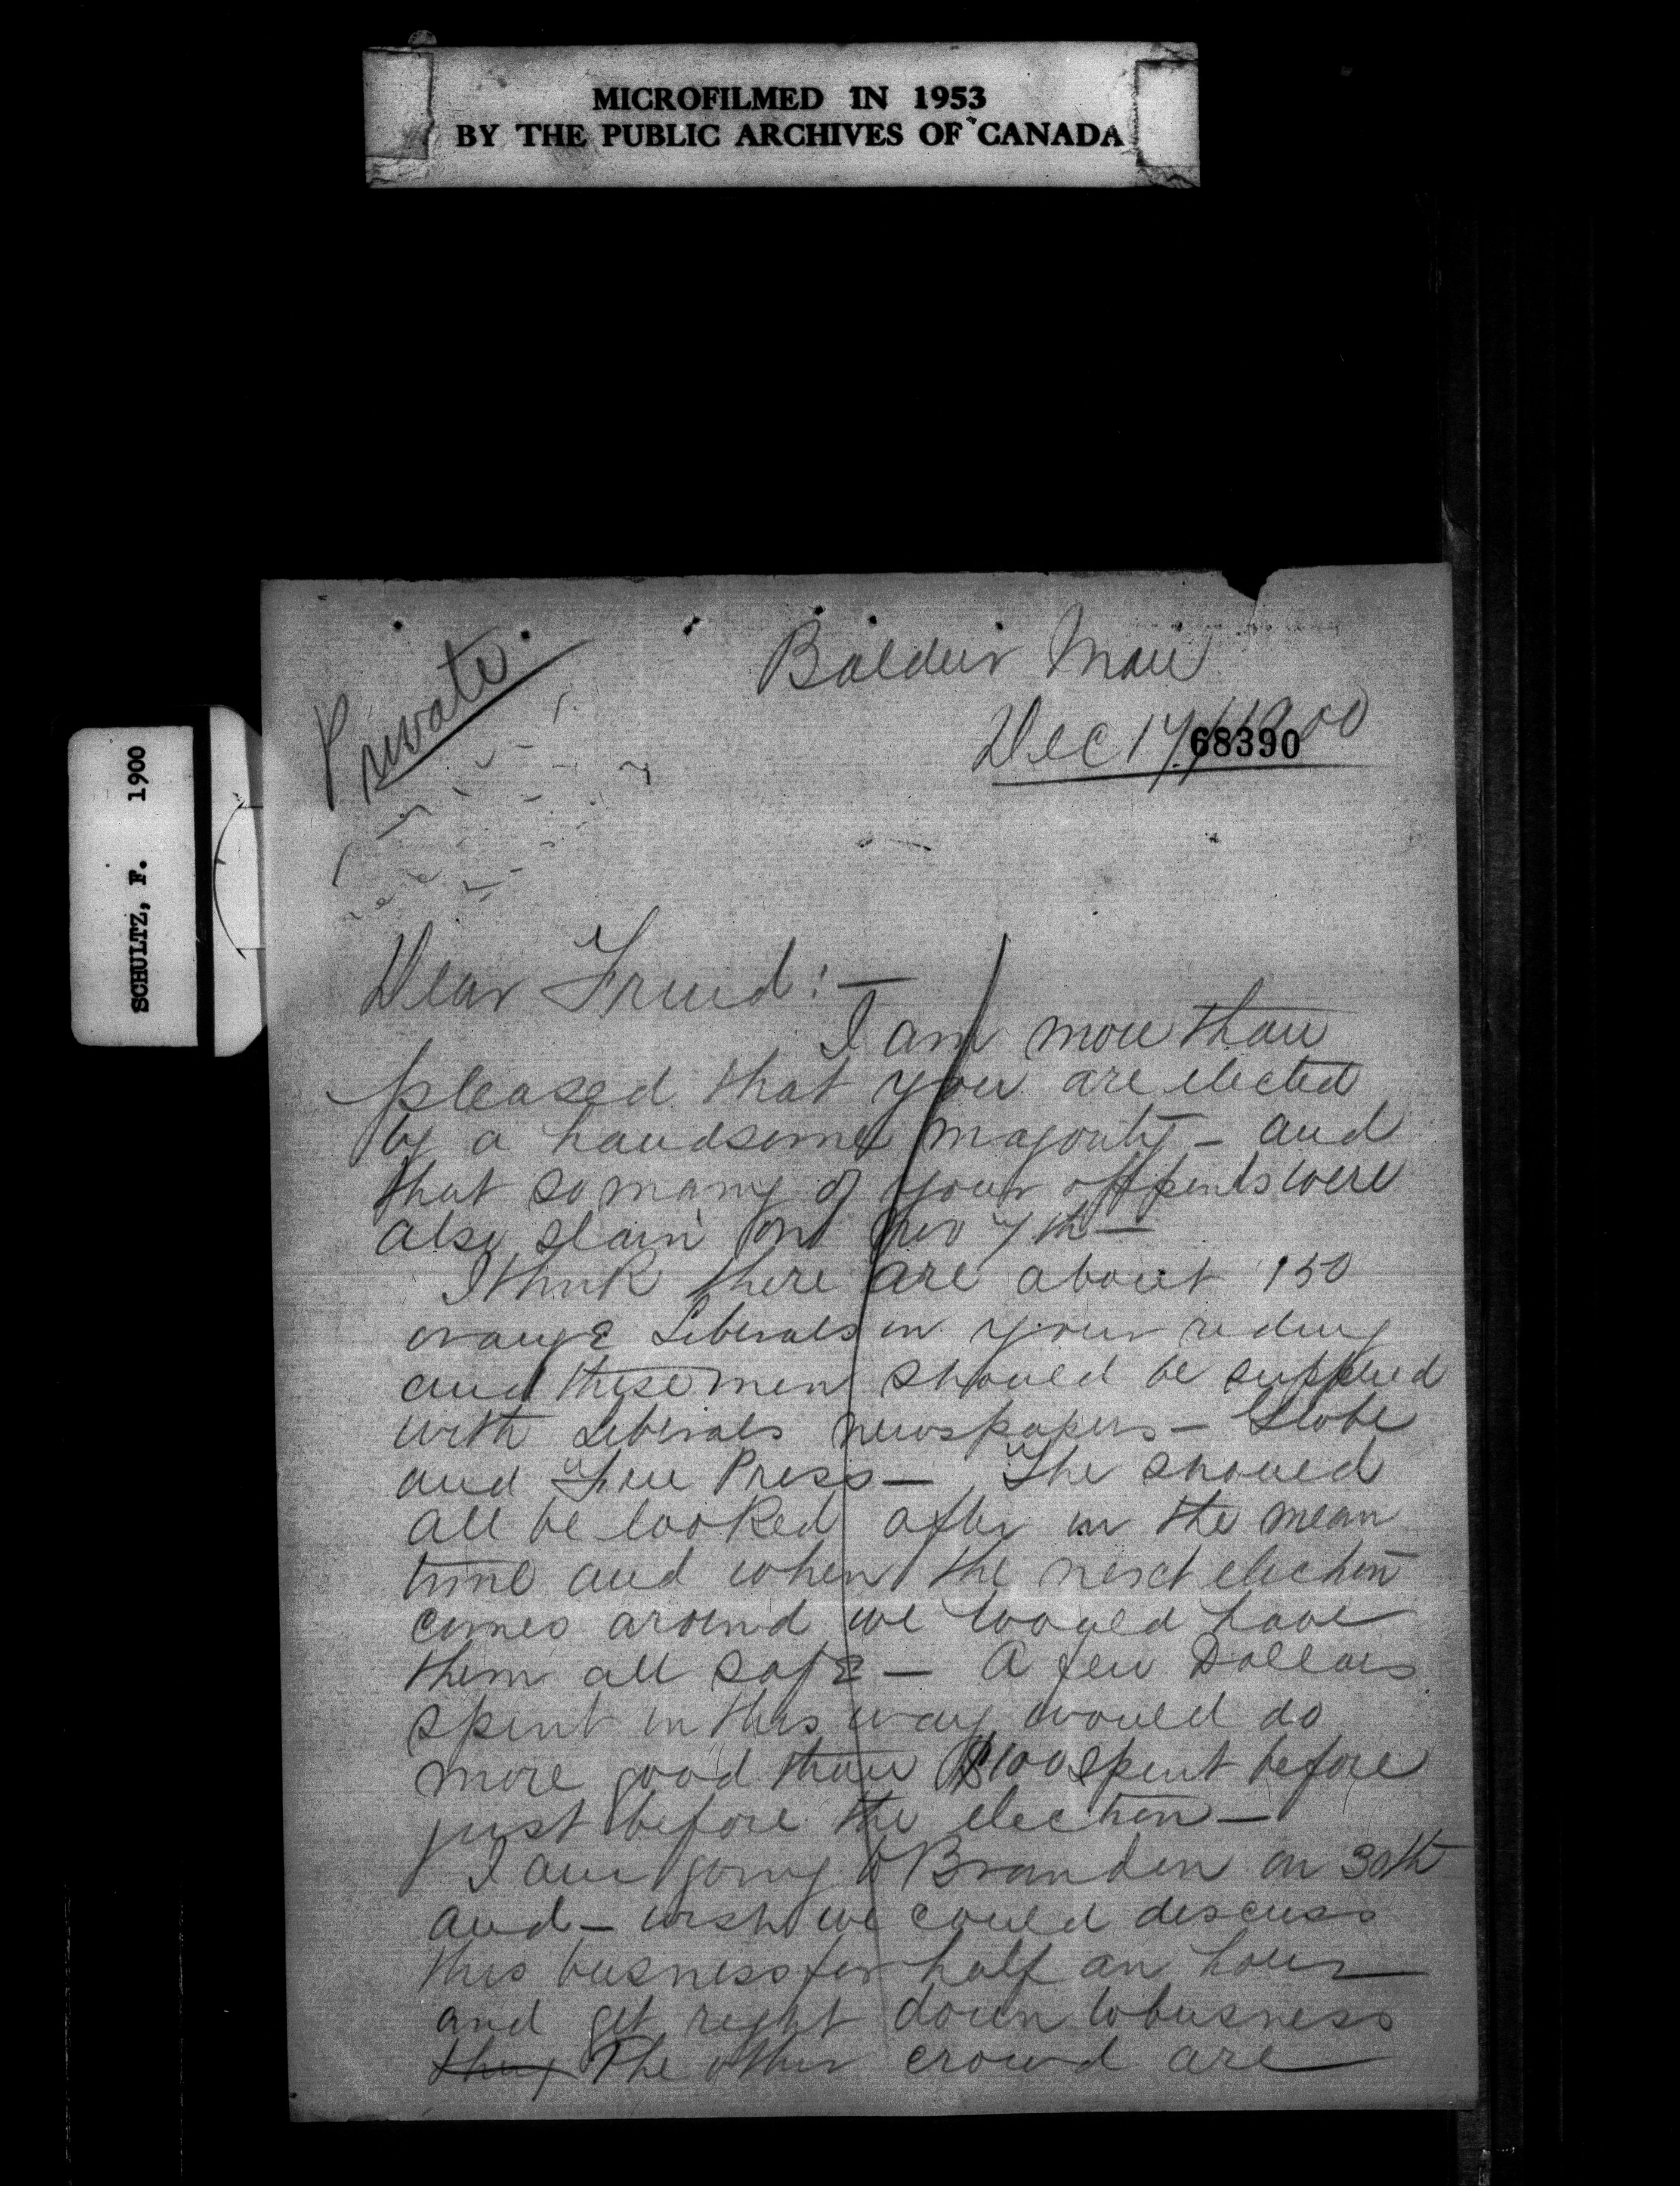 MICROFILMED IN 1953
BY THE PUBLIC ARCHIVES OF CANADA
SCHULTZ, F. 1900
Private.
Baldur Man
Dec 17/1900
68390
Dear Friend:—
I am more than
pleased that you are elected
by a handsome majority — and
that so many of your were
also slain on Nov 7th —
I think there are about 150
orange Liberals in your riding
and these men should be supplied
with Liberals newspapers — Globe
and Free Press — The should
all be looked after in the mean
time and when the next election
comes around we would have
them all safe — A few Dollars
spent in this way would do
more good than $100 spent before
just before the election —
I am going to Brandon on 30th
and — wish we could discuss
this busness for half an hour
and get right down to busness
they The other crowd are